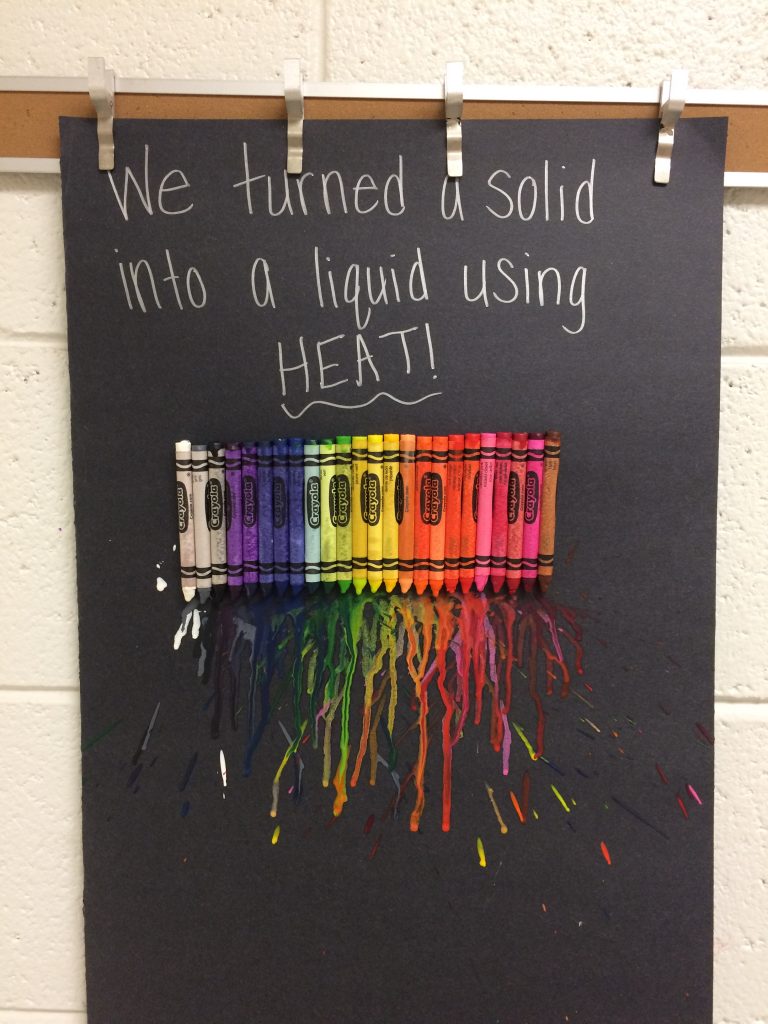 We turned a solid
into a liquid using
HEAT!
Crayola
Crayola
Crayola
Crayola
Crayola
Crayola
Crayola
Crayola